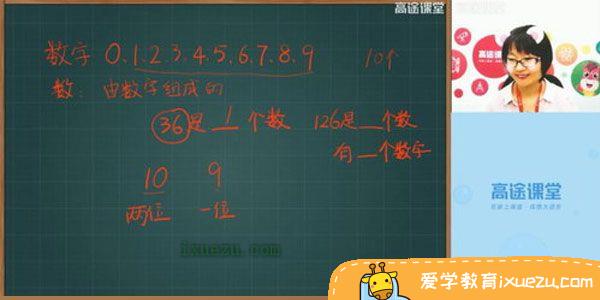 高途课堂
数字 0.1.2.3.4.5.6.7.8.9 10个
数：由数字组成的
36是 1 个数 126是__个数
有__个数字
10 9
两位 一位
ixuezu.com
高途课堂
高途课堂
在家上课堂·成绩大进步
爱学教育ixuezu.com